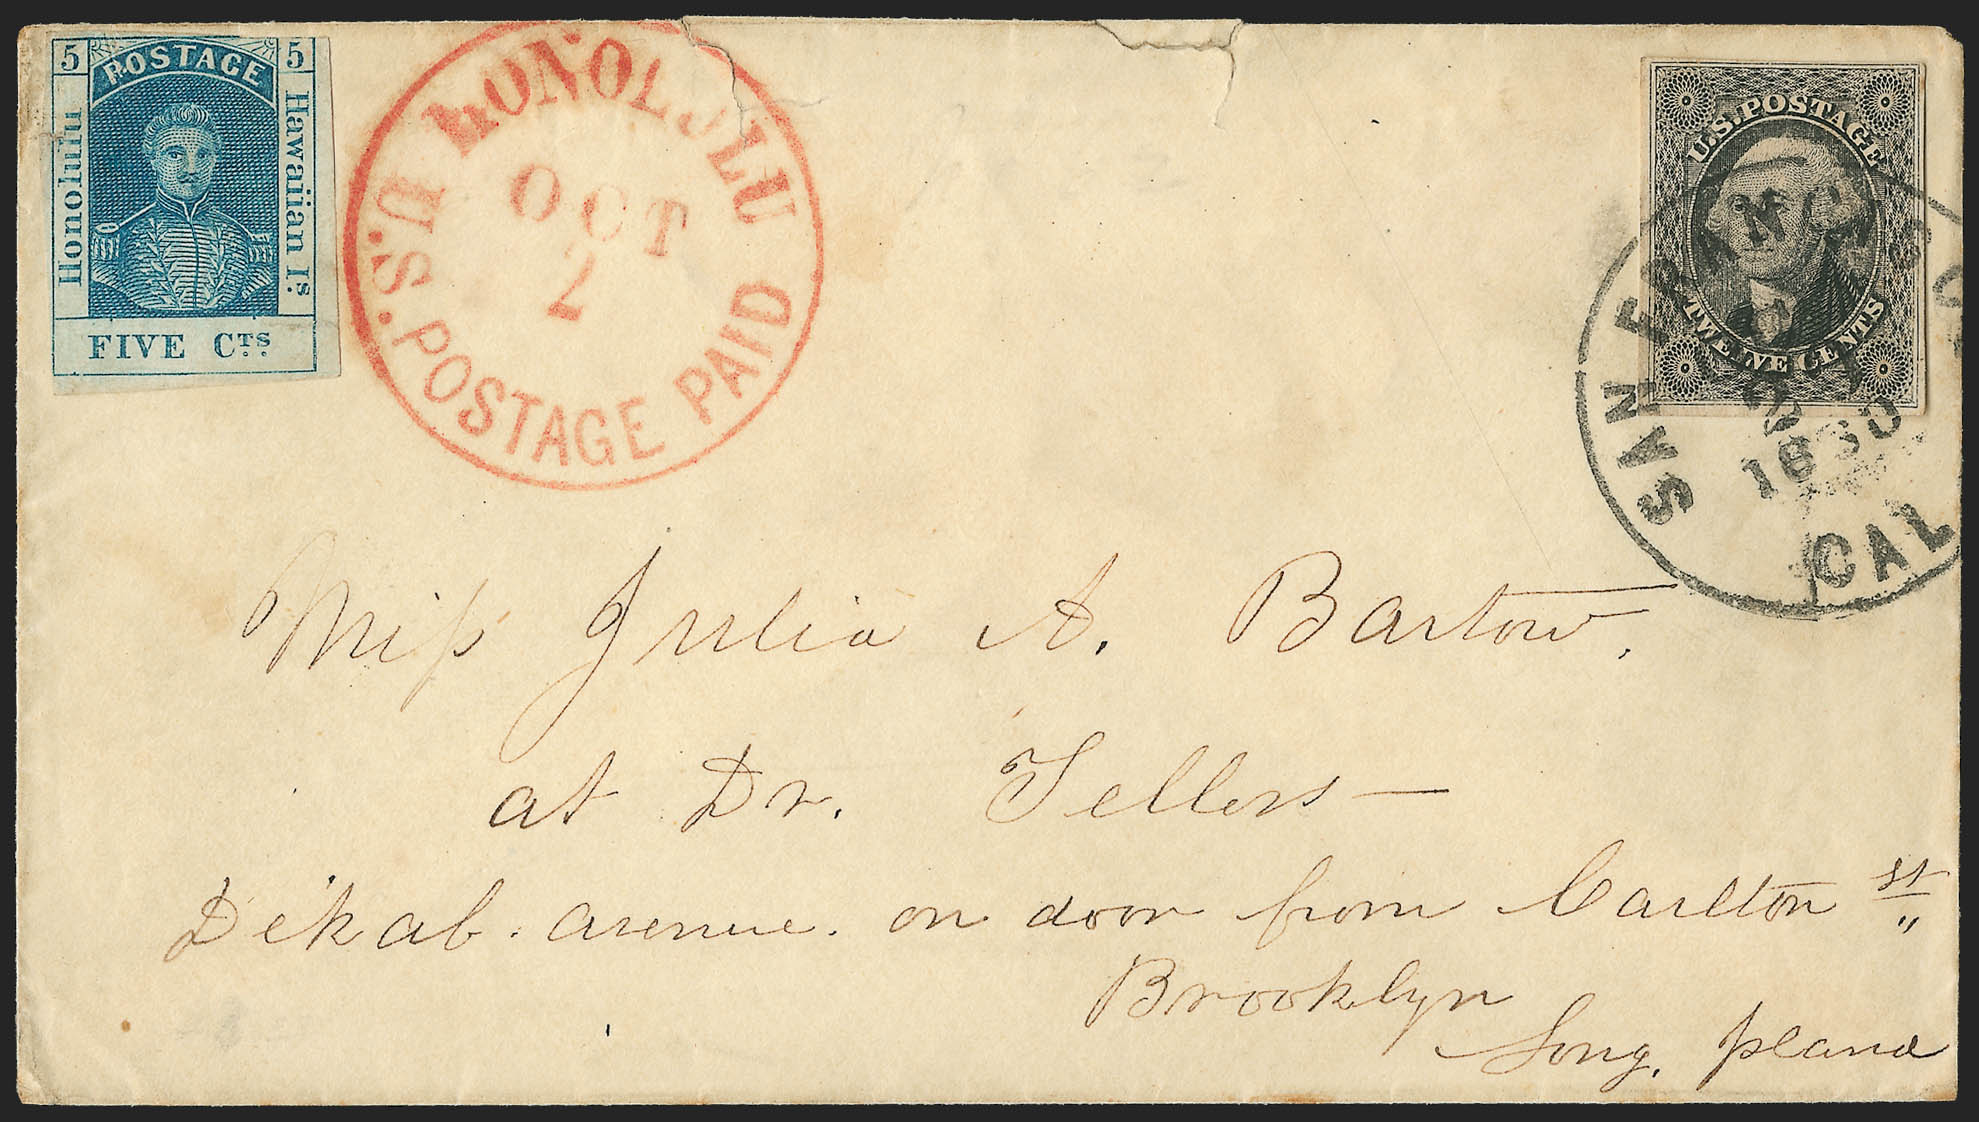 5 POSTAGE 5
Honolulu
Hawaiian Is.
FIVE CTS.
HONOLULU
OCT
2
U.S. POSTAGE PAID
U.S. POSTAGE
TWELVE CENTS
SAN FRANCISCO
2
1860
CAL
Miss Julia A. Bartow.
at Dr. Tellers—
Dekab. avenue. on door from Carlton st
Brooklyn
Long. Island